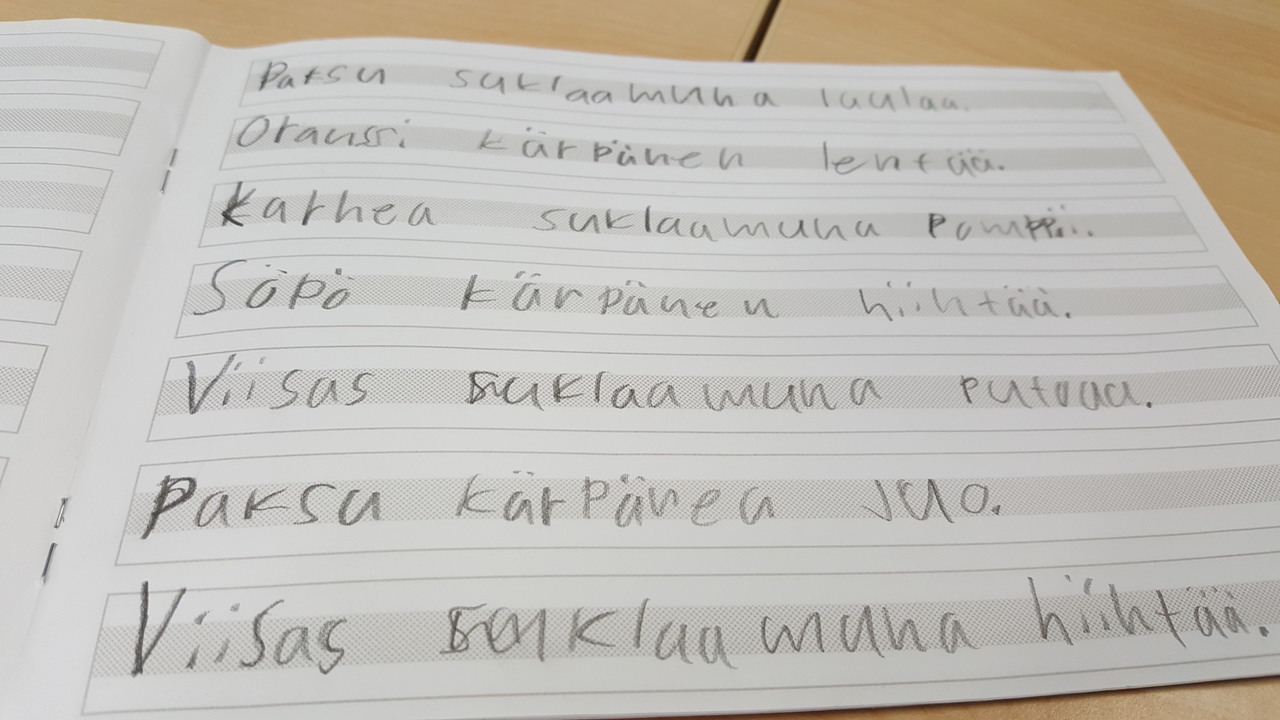 Paksu suklaamuna laulaa.
Oranssi kärpänen lentää.
Karhea suklaamuna pomppii.
Söpö kärpänen hiihtää.
Viisas suklaamuna putoaa.
Paksu kärpänen juo.
Viisas suklaamuna hiihtää.